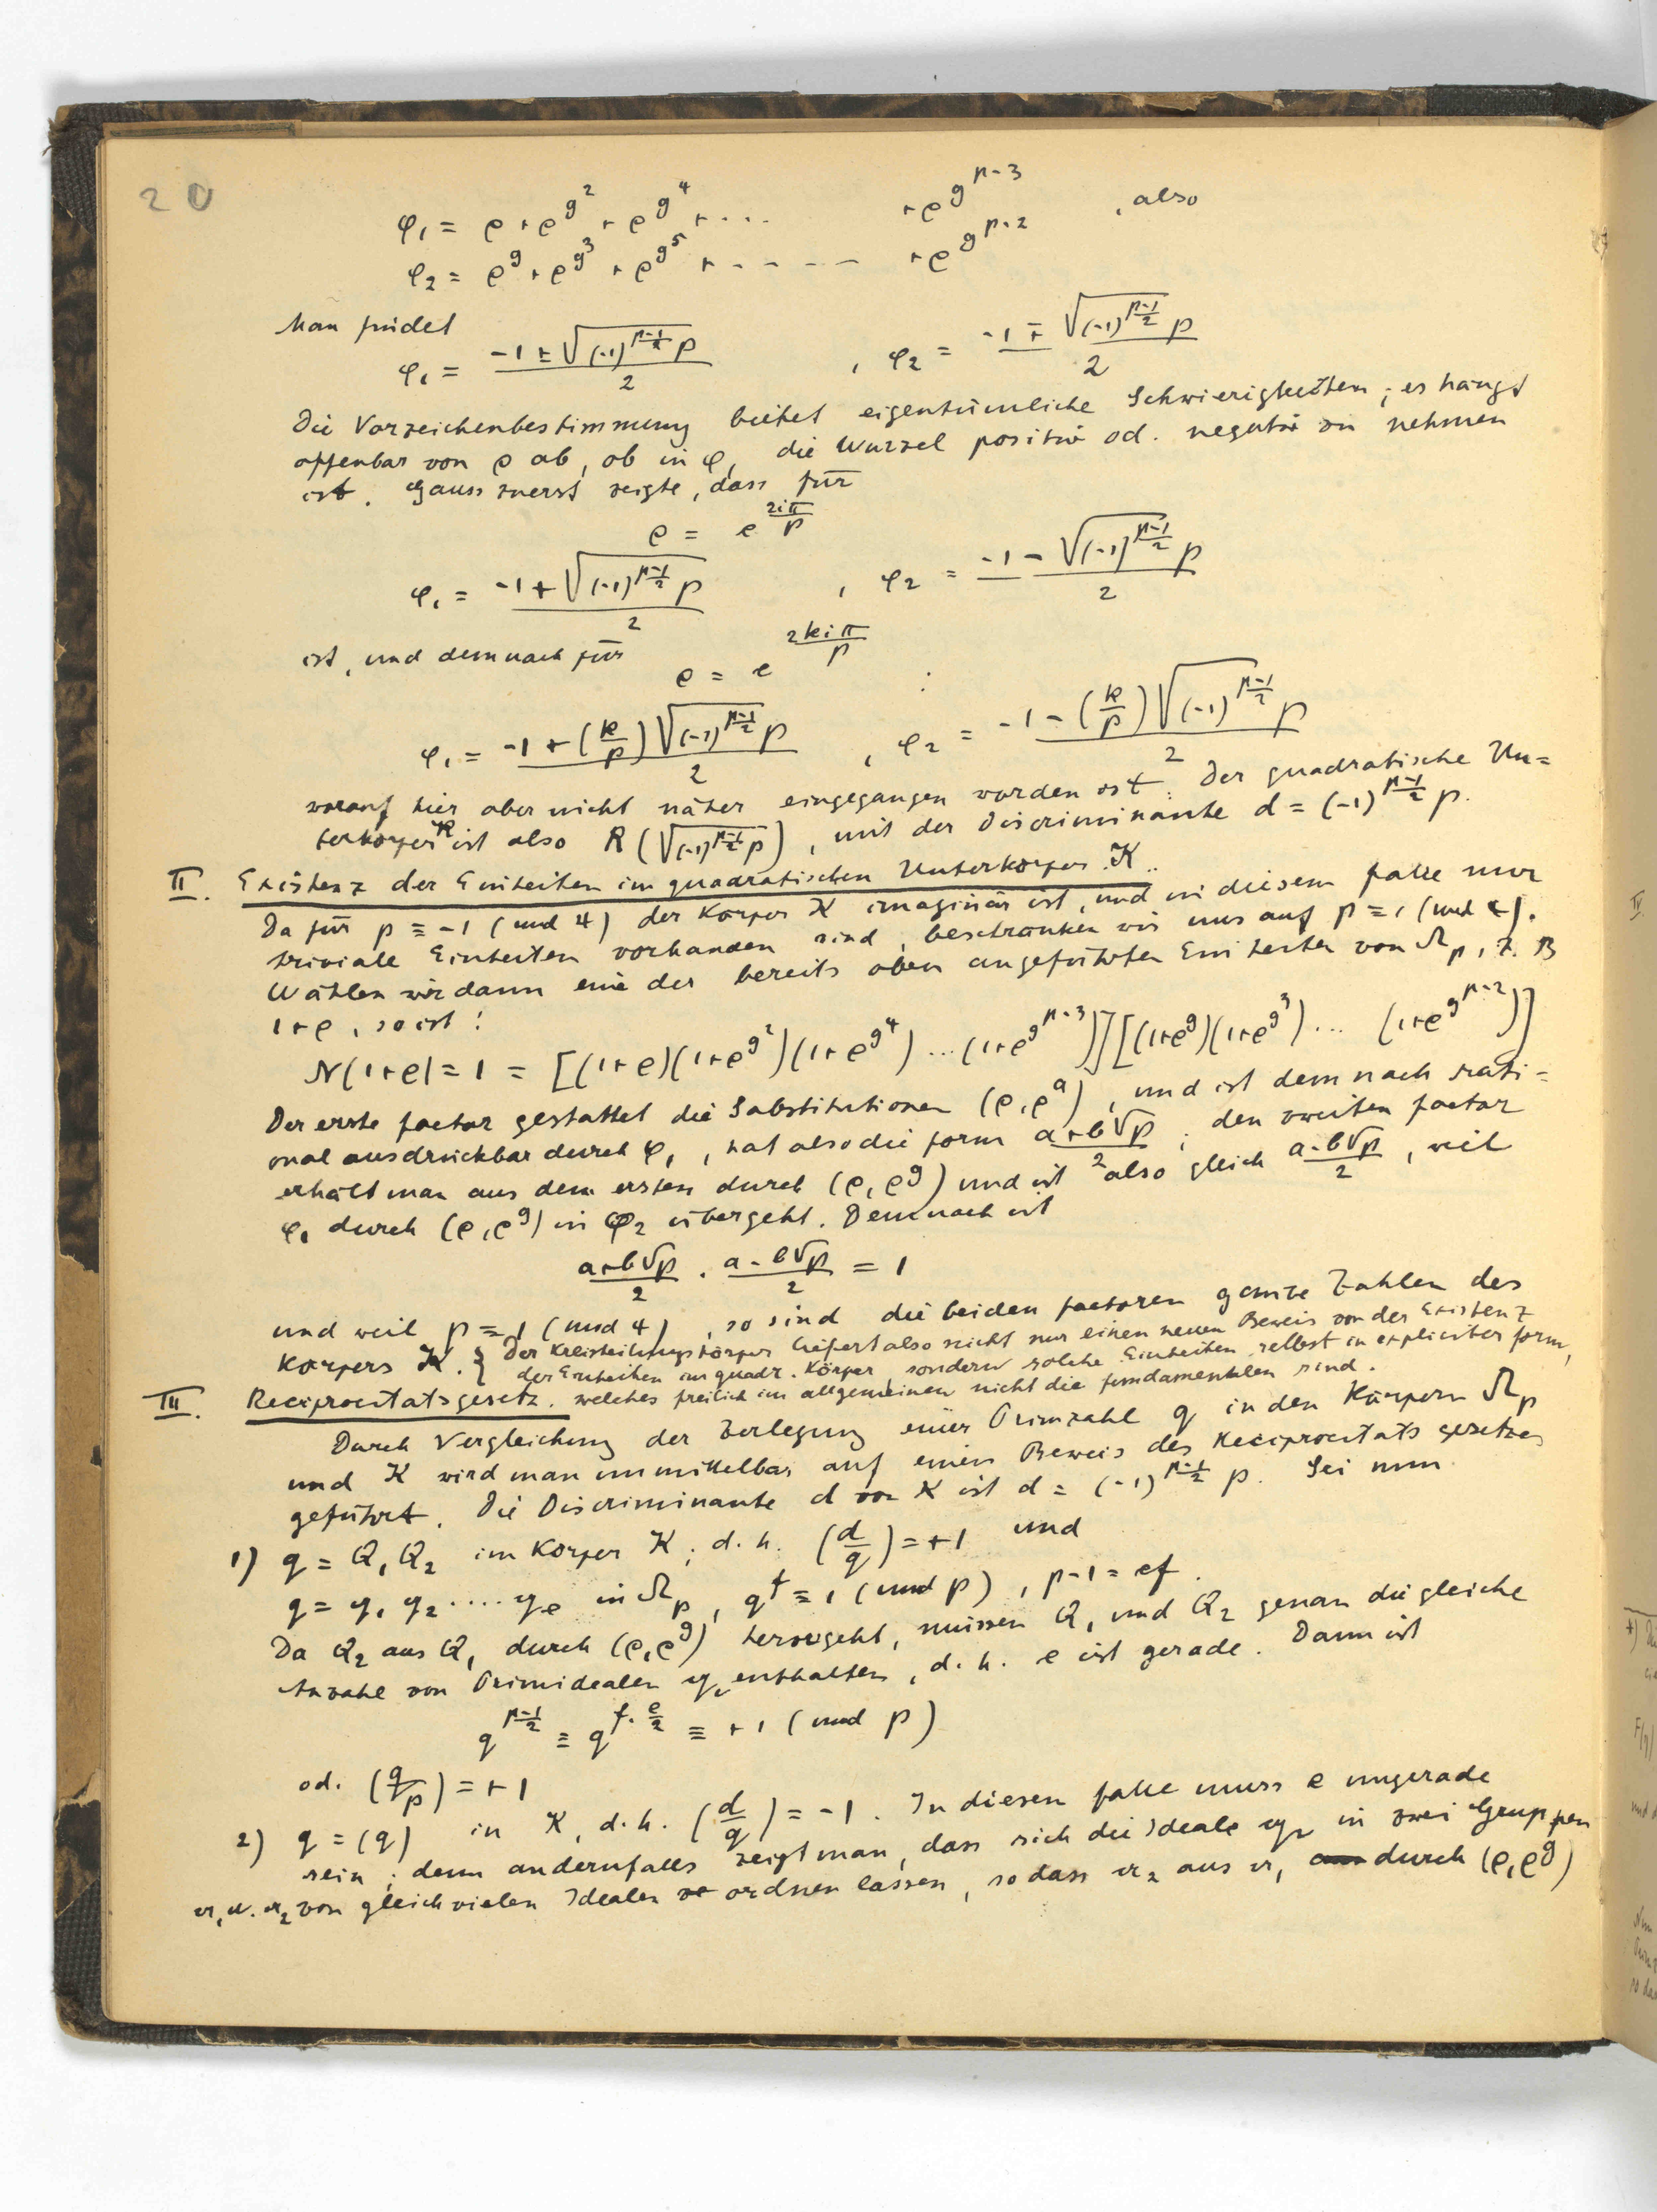 20
φ₁ = ρ + ρ^{g^2} + ρ^{g^4} + ... + ρ^{g^{p-3}} , also
φ₂ = ρ^g + ρ^{g^3} + ρ^{g^5} + - - - - - + ρ^{g^{p-2}}
Man findet
φ₁ = (-1 ± √((-1)^{(p-1)/2} p))/2 , φ₂ = (-1 ∓ √((-1)^{(p-1)/2} p))/2
Die Vorzeichenbestimmung bietet eigentümliche Schwierigkeiten; es hängt
offenbar von ρ ab, ob in φ₁ die Wurzel positiv od. negativ zu nehmen
ist. Gauss zuerst zeigte, dass für
ρ = e^{2iπ/p}
φ₁ = (-1 + √((-1)^{(p-1)/2} p))/2 , φ₂ = (-1 - √((-1)^{(p-1)/2} p))/2
ist, und demnach für
ρ = e^{2kiπ/p} :
φ₁ = (-1 + (k/p) √((-1)^{(p-1)/2} p))/2 , φ₂ = (-1 - (k/p) √((-1)^{(p-1)/2} p))/2
worauf hier aber nicht näher eingegangen worden ist. Der quadratische Un=
terkörper K ist also R(√((-1)^{(p-1)/2} p)), mit der Discriminante d = (-1)^{(p-1)/2} p.
II. Existenz der Einheiten im quadratischen Unterkörper K.
Da für p ≡ -1 (mod 4) der Körper K imaginär ist, und in diesem Falle nur
triviale Einheiten vorhanden sind, beschränken wir uns auf p ≡ 1 (mod 4).
Wählen wir dann eine der bereits oben angeführten Einheiten von Ω_p, z. B
1+ρ, so ist:
N(1+ρ) = 1 = [(1+ρ)(1+ρ^{g^2})(1+ρ^{g^4}) ... (1+ρ^{g^{p-3}})][(1+ρ^g)(1+ρ^{g^3}) ... (1+ρ^{g^{p-2}})]
Der erste Factor gestattet die Substitutionen (ρ, ρ^a), und ist demnach rati=
onal ausdrückbar durch φ₁, hat also die Form (a+b√p)/2; den zweiten Factor
erhält man aus dem ersten durch (ρ, ρ^g) und ist also gleich (a-b√p)/2, weil
φ₁ durch (ρ, ρ^g) in φ₂ übergeht. Demnach ist
(a+b√p)/2 . (a-b√p)/2 = 1
und weil p ≡ 1 (mod 4), so sind die beiden Factoren ganze Zahlen des
Körpers K. { Der Kreisteilungskörper liefert also nicht nur einen neuen Beweis von der Existenz
der Einheiten im quadr. Körper sondern solche Einheiten selbst in expliciter Form,
III. Reciprocitätsgesetz. welches freilich im allgemeinen nicht die fundamentalen sind.
Durch Vergleichung der Zerlegung einer Primzahl q in den Körpern Ω_p
und K wird man unmittelbar auf einen Beweis des Reciprocitätsgesetzes
geführt. Die Discriminante d von K ist d = (-1)^{(p-1)/2} p. Sei nun
1) q = Q₁ Q₂ im Körper K; d. h. (d/q) = +1 und
q = q₁ q₂ .... q_e in Ω_p, q^f ≡ 1 (mod p), p-1 = ef.
Da Q₂ aus Q₁ durch (ρ, ρ^g) hervorgeht, müssen Q₁ und Q₂ genau die gleiche
Anzahl von Primidealen q_i enthalten, d. h. e ist gerade. Dann ist
q^{(p-1)/2} ≡ q^{f · e/2} ≡ +1 (mod p)
od. (q/p) = +1
2) q = (q) in K, d. h. (d/q) = -1. In diesen Falle muss e ungerade
sein; denn andernfalls zeigt man, dass sich die Ideale q_i in zwei Gruppen
a₁ u. a₂ von gleichvielen Idealen ordnen lassen, so dass a₂ aus a₁ durch (ρ, ρ^g)